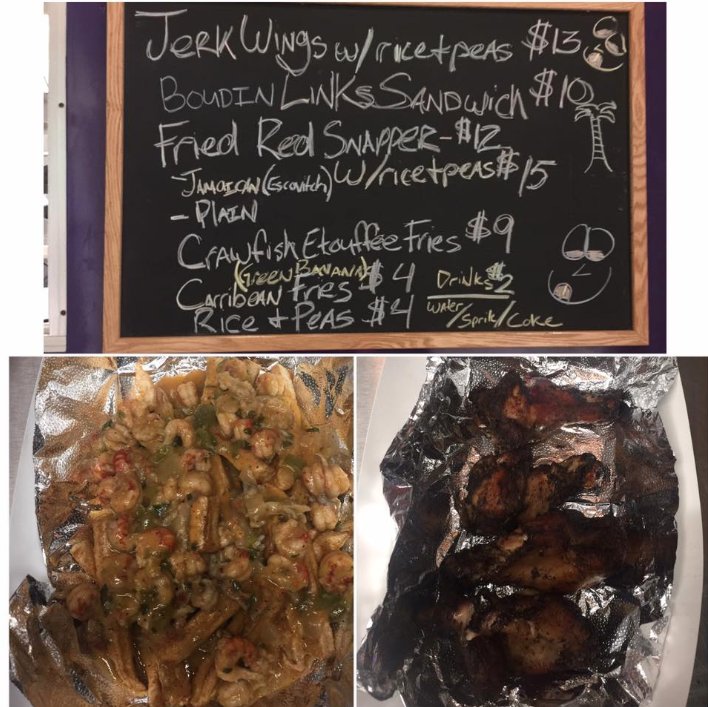 Jerk Wings w/rice+peas $13
Boudin Links Sandwich $10
Fried Red Snapper - $12
Jamaican (Escovitch) w/rice+peas $15
- Plain
Crawfish Etouffee Fries $9
(Green Banana)
Carribean Fries $4
Rice + Peas $4
Drinks $2
Water/Sprite/Coke